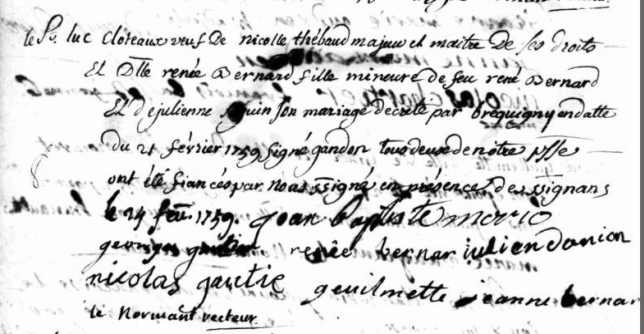 le Sr. luc Cloteaux veuf de nicolle thébaud majeur et maitre de ses droits
Et Dlle renée Bernard fille mineure de feu rené Bernard
Et de julienne son mariage decreté par Brequigny en datte
du 21 février 1759 signé gandon tous deux de notre psse
ont été fiancés par nous ssigné en présence des ssignans
le 24 feu. 1759. jean baptiste morio
georges renée bernar julien danion
nicolas gautie guilmette jeanne bernar
le Normant recteur.